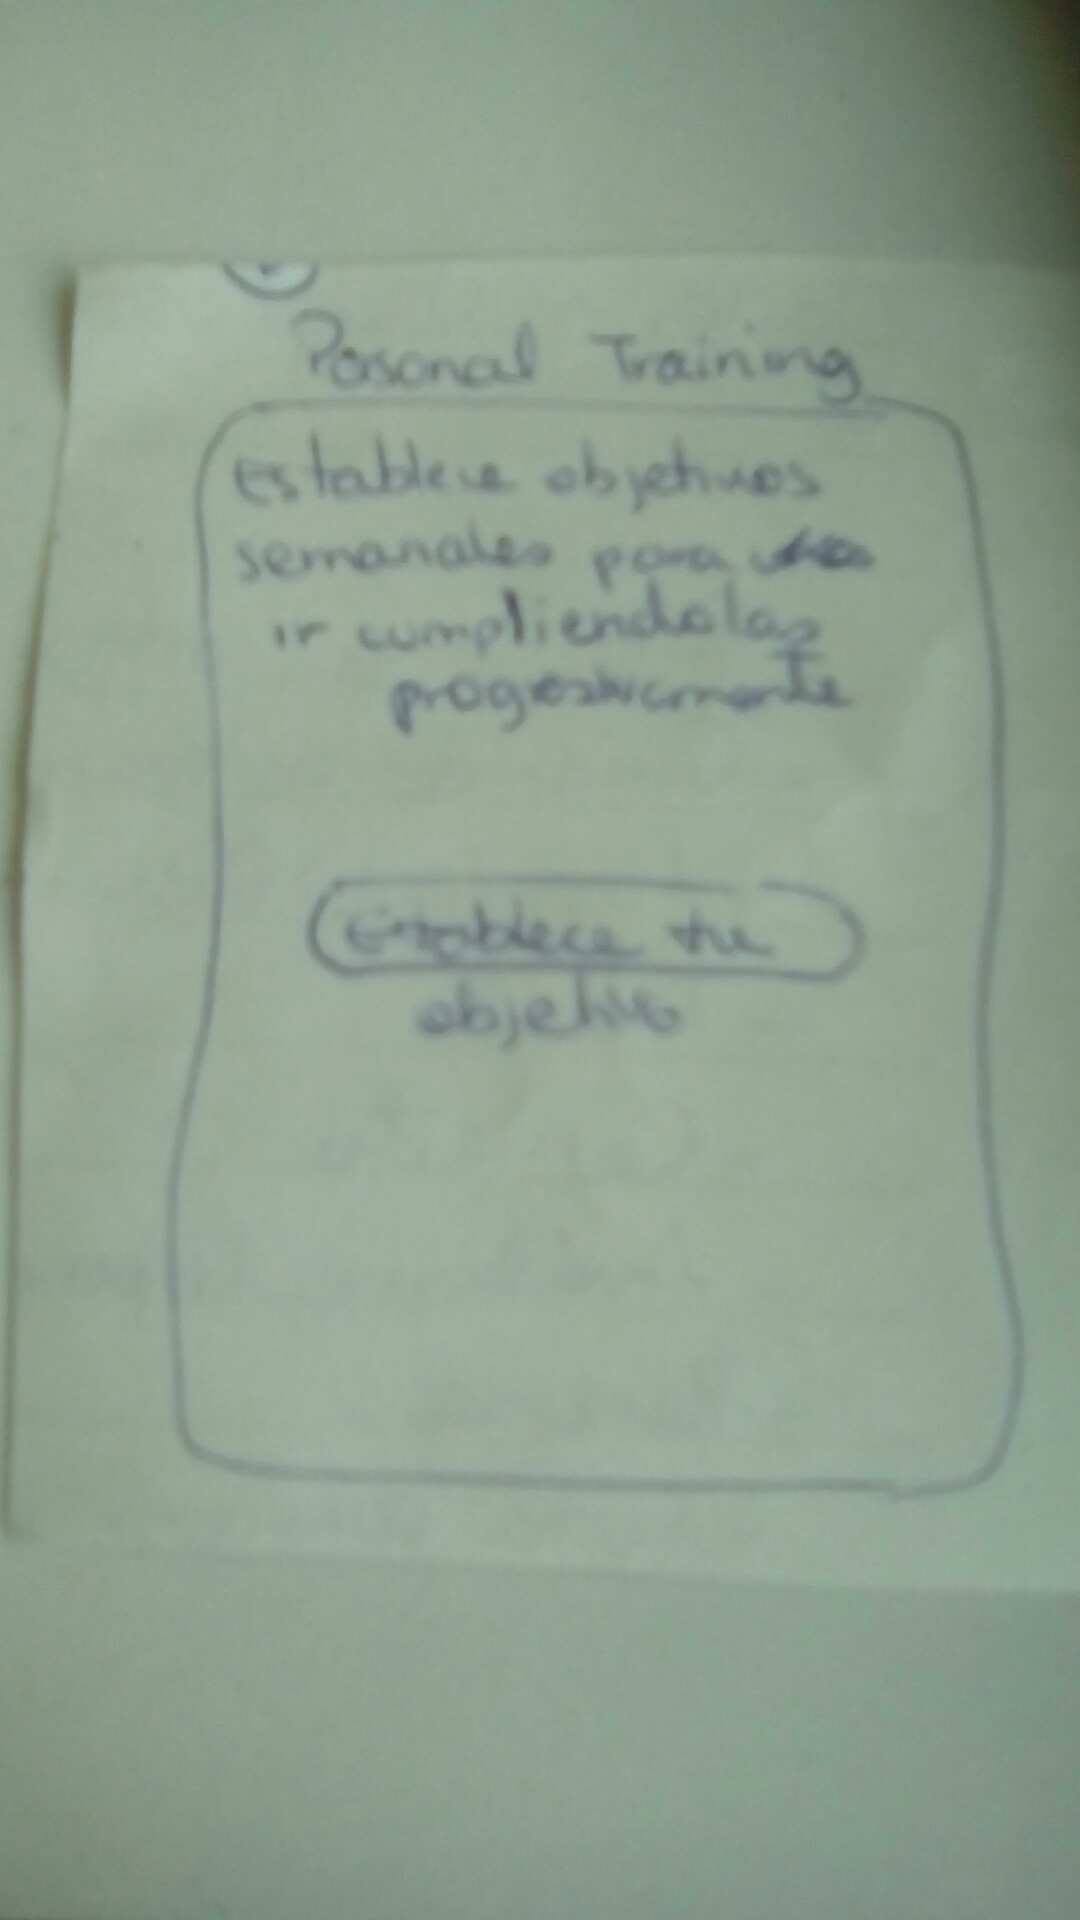 Personal Training
Establece objetivos
semanales para
ir cumpliendolas
progresivamente
Establece tu
objetivo